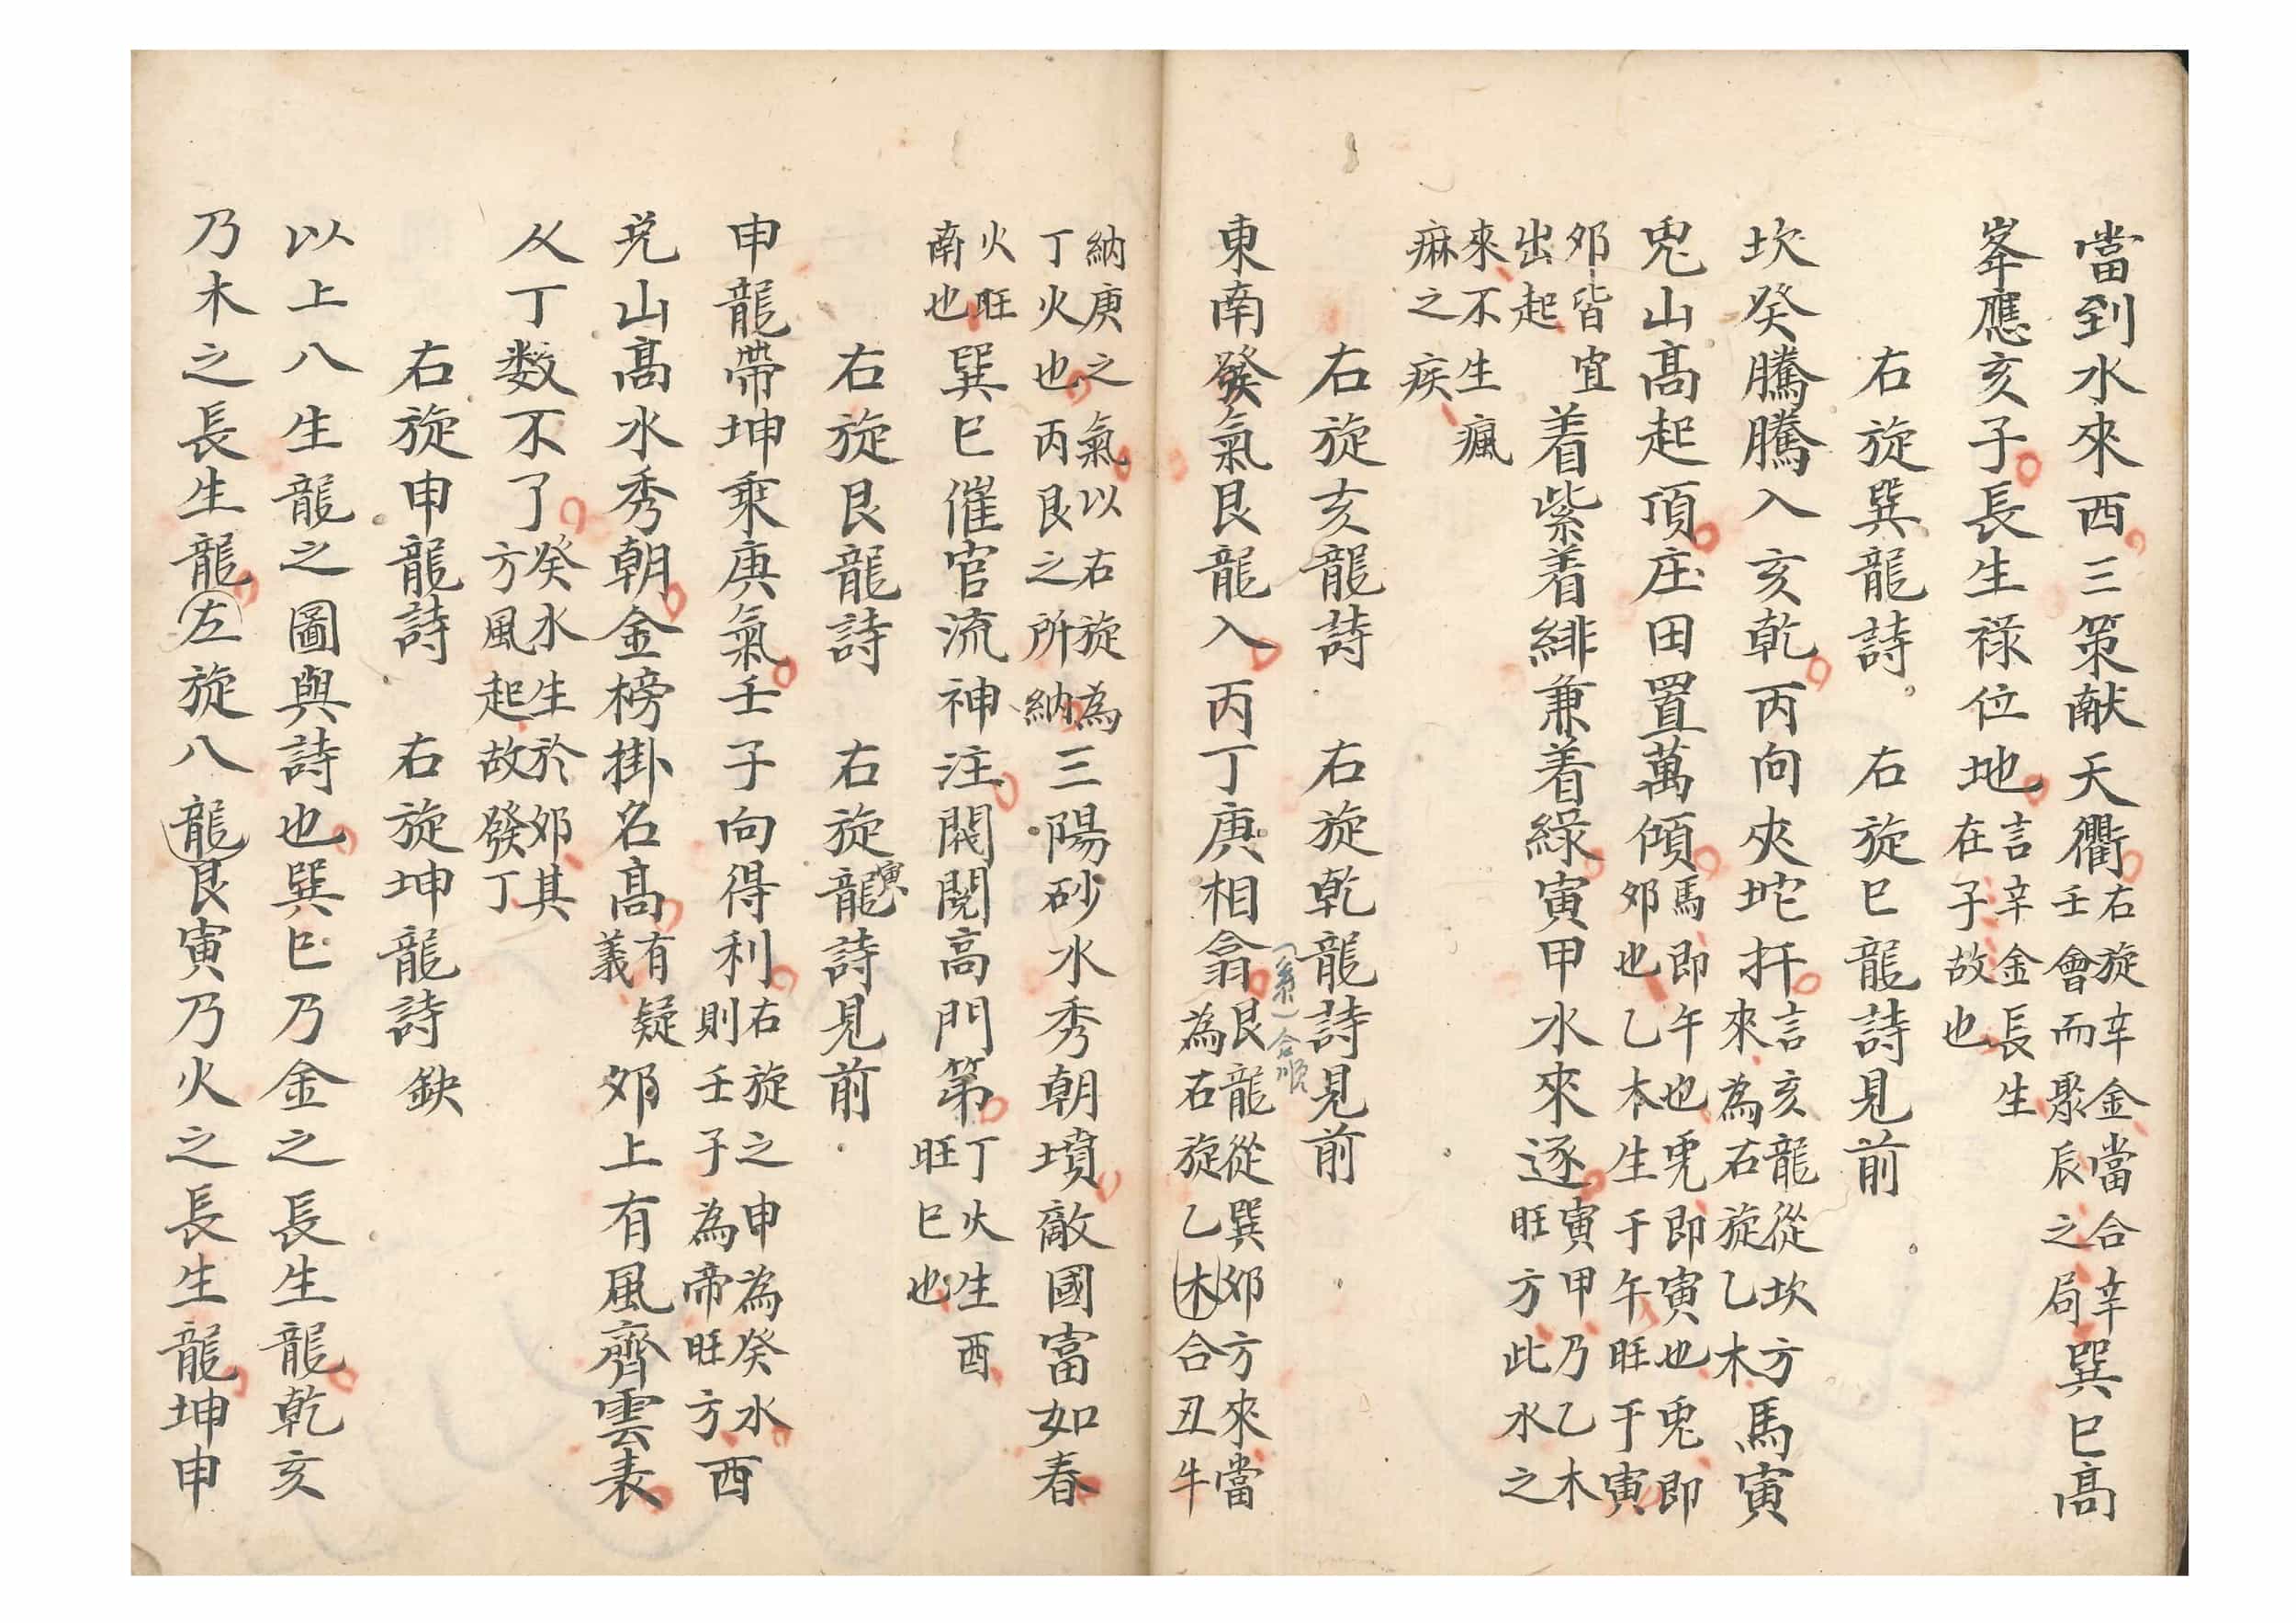 當到水來西三策献天衢右旋辛金當合辛壬會而聚辰之局巽巳高
峯應亥子長生禄位地言辛金長生在子故也
右旋巽龍詩 右旋巳龍詩見前
坎癸騰騰入亥乾丙向夾坨扞言亥龍從坎方來為右旋乙木馬寅
兎山高起頂庄田置萬傾馬即午也兎即寅也兎即夘也乙木生于午旺于寅
夘皆宜出起着紫着緋兼着綠寅甲水來逐寅甲乃乙木旺方此水之
來不生瘋痳之疾
右旋亥龍詩 右旋乾龍詩見前
東南發氣艮龍入丙丁庚相翕艮龍從巽夘方來當為右旋乙木合丑牛
(翕)合順
納庚之氣以右旋為丁火也丙艮之所納三陽砂水秀朝墳敵國富如春
火旺南也巽巳催官流神注閥閱高門第丁火生酉旺巳也
右旋艮龍詩 右旋寅龍詩見前
申龍帶坤乘庚氣壬子向得利右旋之申為癸水則壬子為帝旺方酉
兊山高水秀朝金榜掛名高有疑義夘上有風齊雲表
从丁数不了癸水生於夘其方風起故發丁
右旋申龍詩 右旋坤龍詩 鈌
以上八生龍之圖與詩也巽巳乃金之長生龍乾亥
乃木之長生龍左旋八龍艮寅乃火之長生龍坤申